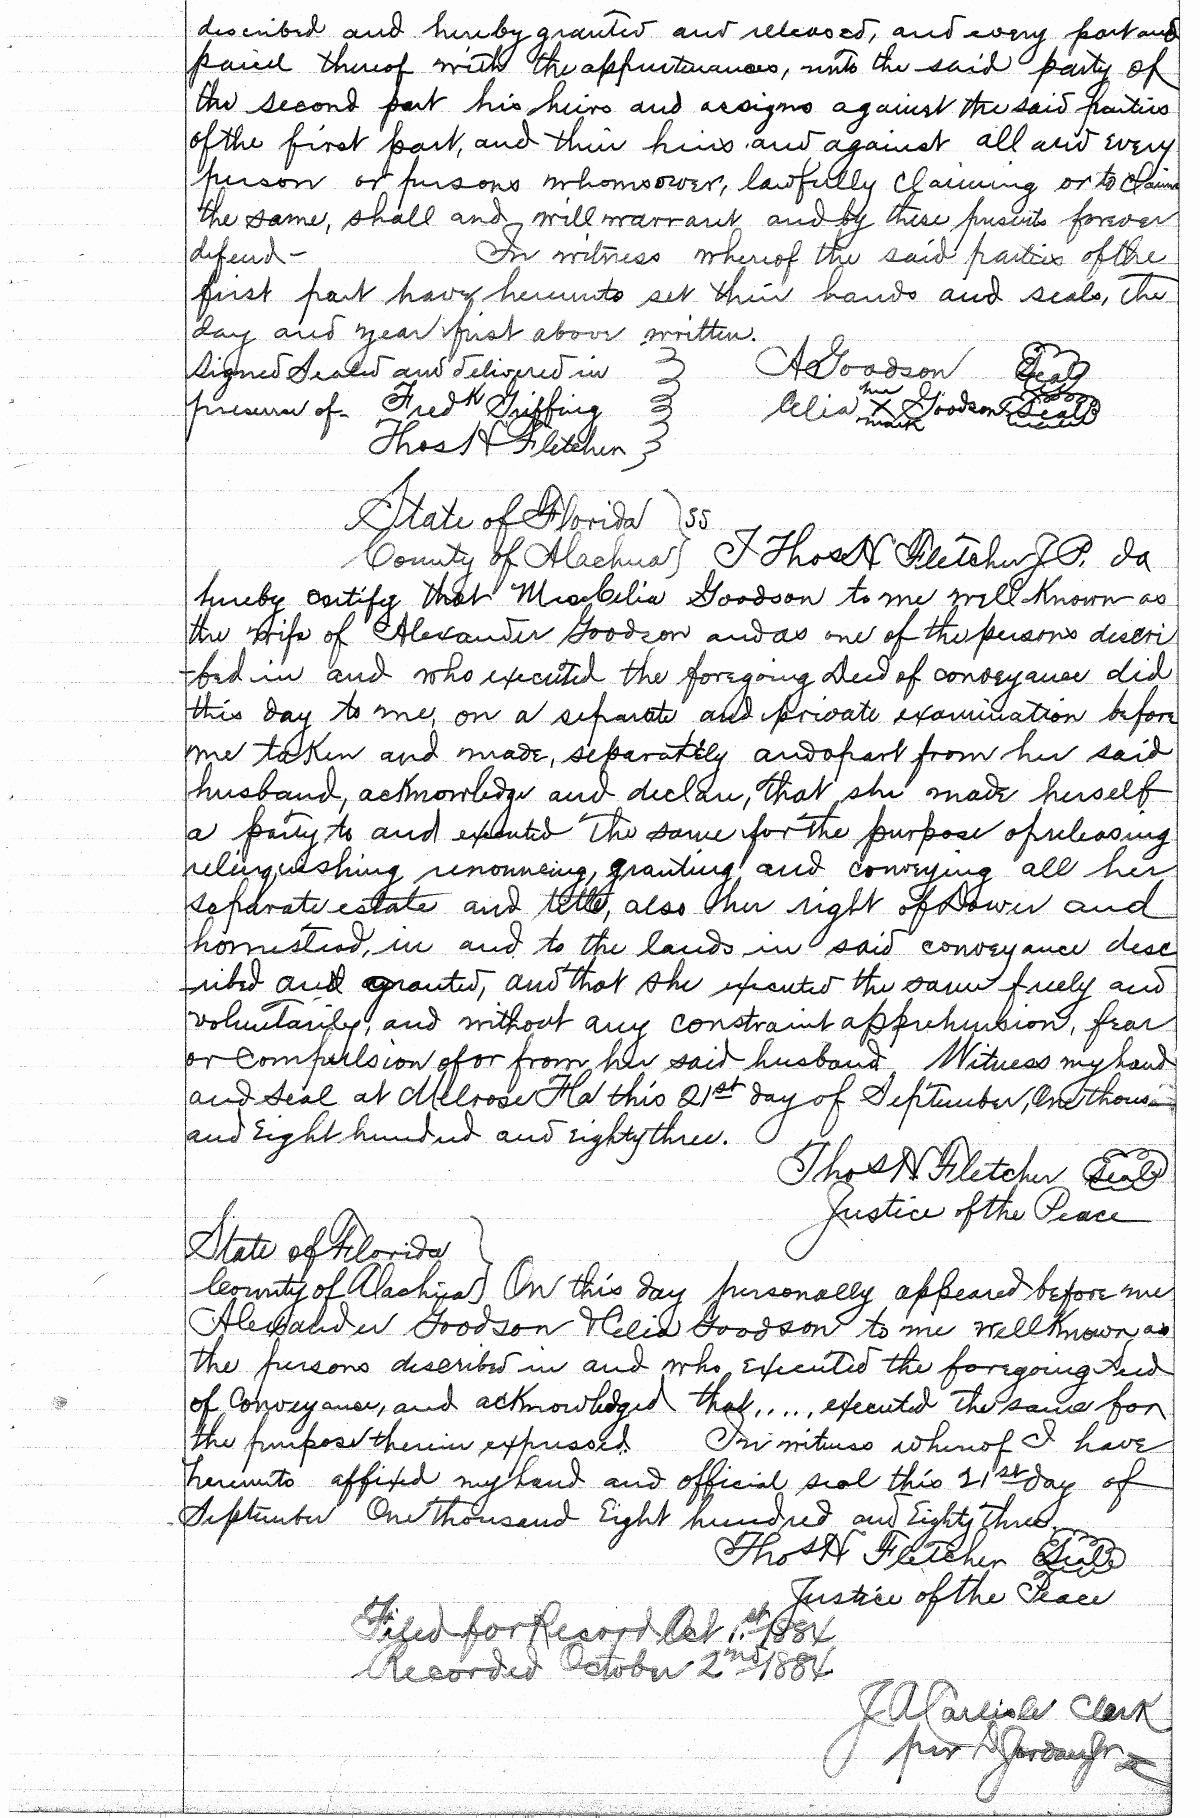 described and hereby granted and released, and every part and
parcel thereof with the appurtenances, unto the said party of
the second part his heirs and assigns against the said parties
of the first part, and their heirs and against all and every
person or persons whomsoever, lawfully claiming or to claim
the same, shall and will warrant and by these presents forever
defend - In witness whereof the said parties of the
first part have hereunto set their hands and seals, the
day and year first above written.
Signed Sealed and delivered in A Goodson Seal
presence of - Fredk Griffing Celia her X mark Goodson Seal
Thos H Fletcher
State of Florida } SS
County of Alachua } I Thos H Fletcher J. P. do
hereby certify that Mrs Celia Goodson to me well Known as
the wife of Alexander Goodson and as one of the persons descri
-bed in and who executed the foregoing Deed of conveyance did
this day to me, on a separate and private examination before
me taken and made, separately and apart from her said
husband, acknowledge and declare, that she made herself
a party to and executed the same for the purpose of releasing
relinquishing renouncing, granting and conveying all her
separate estate and title, also her right of Dower and
homestead, in and to the lands in said conveyance desc
-ribed and granted, and that she executed the same freely and
voluntarily, and without any constraint apprehension, fear
or compulsion of or from her said husband. Witness my hand
and seal at Melrose Fla this 21st day of September, One thous-
and Eight hundred and eighty three.
Thos H Fletcher Seal
Justice of the Peace
State of Florida }
County of Alachua } On this day personally appeared before me
Alexander Goodson & Celia Goodson to me well Known as
the persons described in and who executed the foregoing deed
of conveyance, and acknowledged that ..... executed the same for
the purpose therein expressed. In witness whereof I have
hereunto affixed my hand and official seal this 21st day of
September One thousand Eight hundred and Eighty three.
Thos H Fletcher Seal
Justice of the Peace
Filed for Record Oct 1st 1884
Recorded October 2nd 1884
J A Carlisle Clerk
per D Jordan Jr